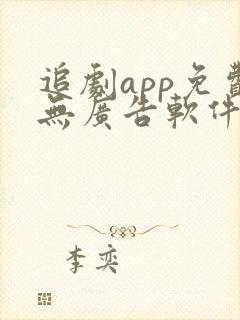 追劇app免費
無廣告軟件
李奕